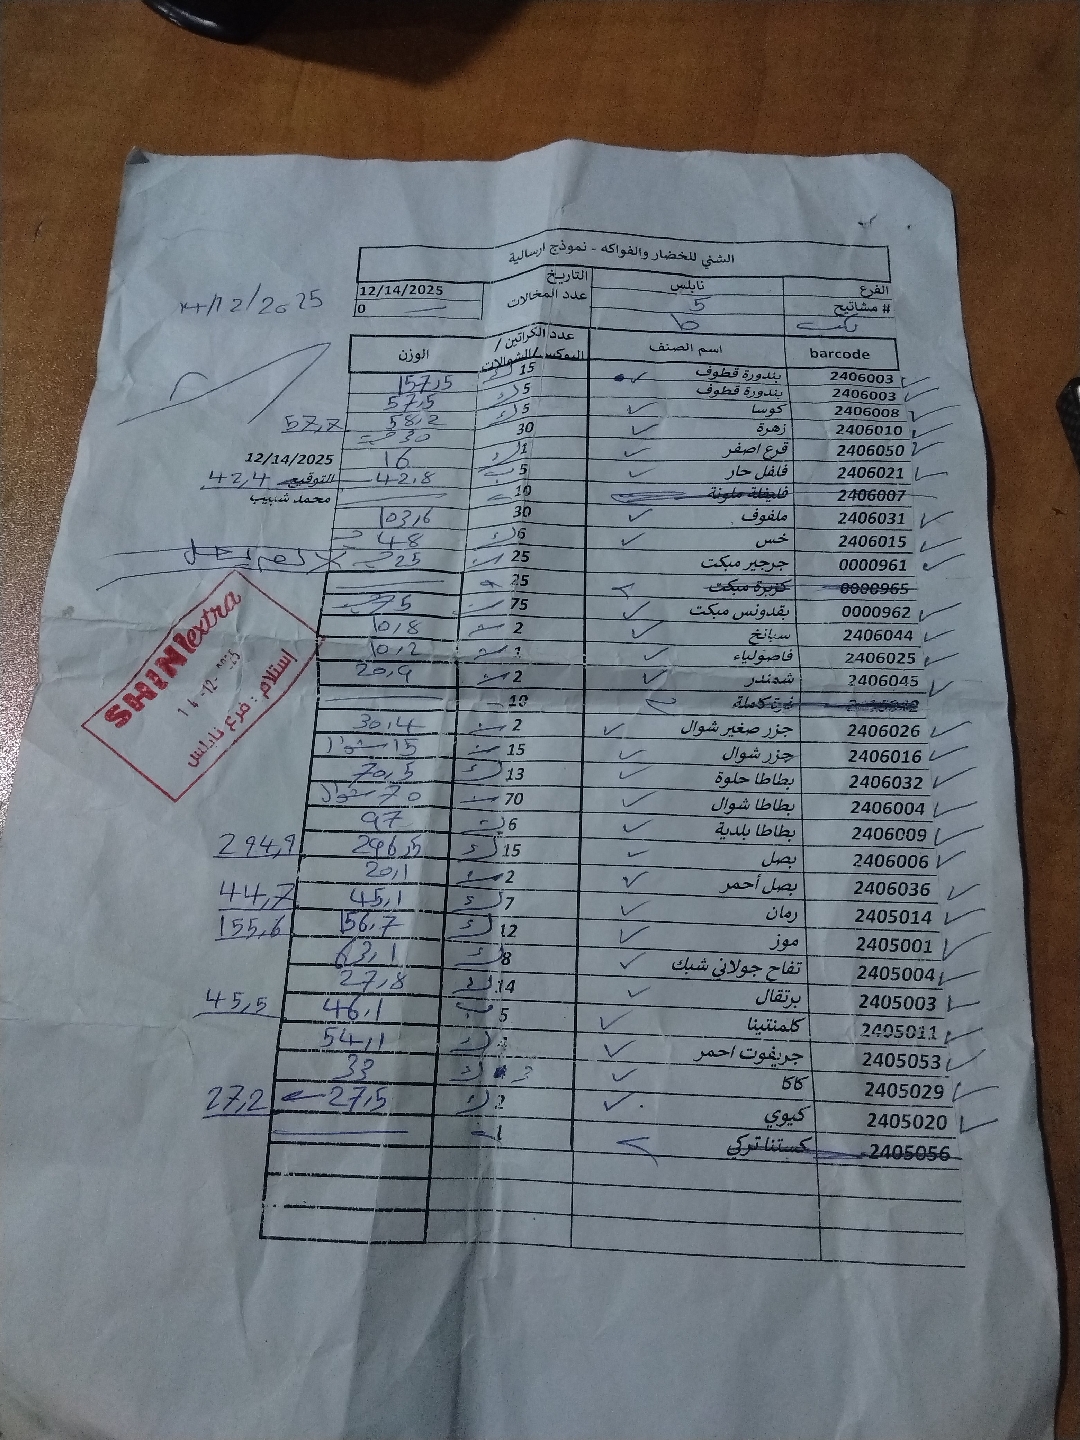 الشني للخضار والفواكه - نموذج ارسالية
الفرع نابلس التاريخ 12/14/2025
# مشاتيح 5 عدد المخالات 0
6
barcode اسم الصنف عدد الكراتين / البوكس / الشوالات الوزن
2406003 بندورة قطوف 15 157,5
2406003 بندورة قطوف 5 57,5
2406008 كوسا 5 58,2 57,7
2406010 زهرة 30 30
2406050 قرع اصفر 1 16
2406021 فلفل حار 5 42,8 42,4
2406007 فليفلة ملونة 10
2406031 ملفوف 30 103,6
2406015 خس 6 48
0000961 جرجير مبكت 25 25
0000965 كزبرة مبكت 25
0000962 بقدونس مبكت 75 75
2406044 سبانخ 2 10,8
2406025 فاصولياء 1 10,2
2406045 شمندر 2 20,9
ذرة كاملة 10
2406026 جزر صغير شوال 2 30,4
2406016 جزر شوال 15 15 شوال
2406032 بطاطا حلوة 13 70,5
2406004 بطاطا شوال 70 70 شوال
2406009 بطاطا بلدية 6 97
2406006 بصل 15 296,5 294,9
2406036 بصل أحمر 2 20,1
2405014 رمان 7 45,1 44,7
2405001 موز 12 156,7 155,6
2405004 تفاح جولاني شبك 8 63,1
2405003 برتقال 14 27,8
2405011 كلمنتينا 5 46,1 45,5
2405053 جريفوت احمر 54,1
2405029 كاكا 3 33
2405020 كيوي 2 27,5 27,2
2405056 كستنا تركي 1
12/14/2025
التوقيع
محمد شبيب
SHINI extra
14-12-2025
استلام : فرع نابلس